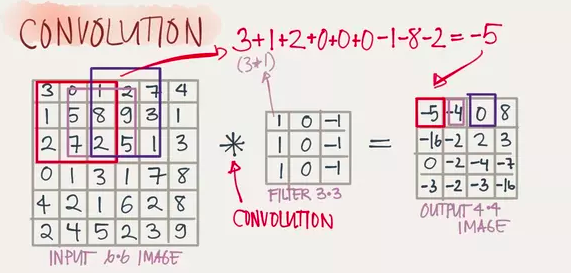 CONVOLUTION
3+1+2+0+0+0-1-8-2=-5
(3*1)
3 0 1 2 7 4
1 5 8 9 3 1
2 7 2 5 1 3
0 1 3 1 7 8
4 2 1 6 2 8
2 4 5 2 3 9
INPUT 6·6 IMAGE
*
CONVOLUTION
1 0 -1
1 0 -1
1 0 -1
FILTER 3·3
=
-5 -4 0 8
-16 -2 2 3
0 -2 -4 -7
-3 -2 -3 -16
OUTPUT 4·4
IMAGE